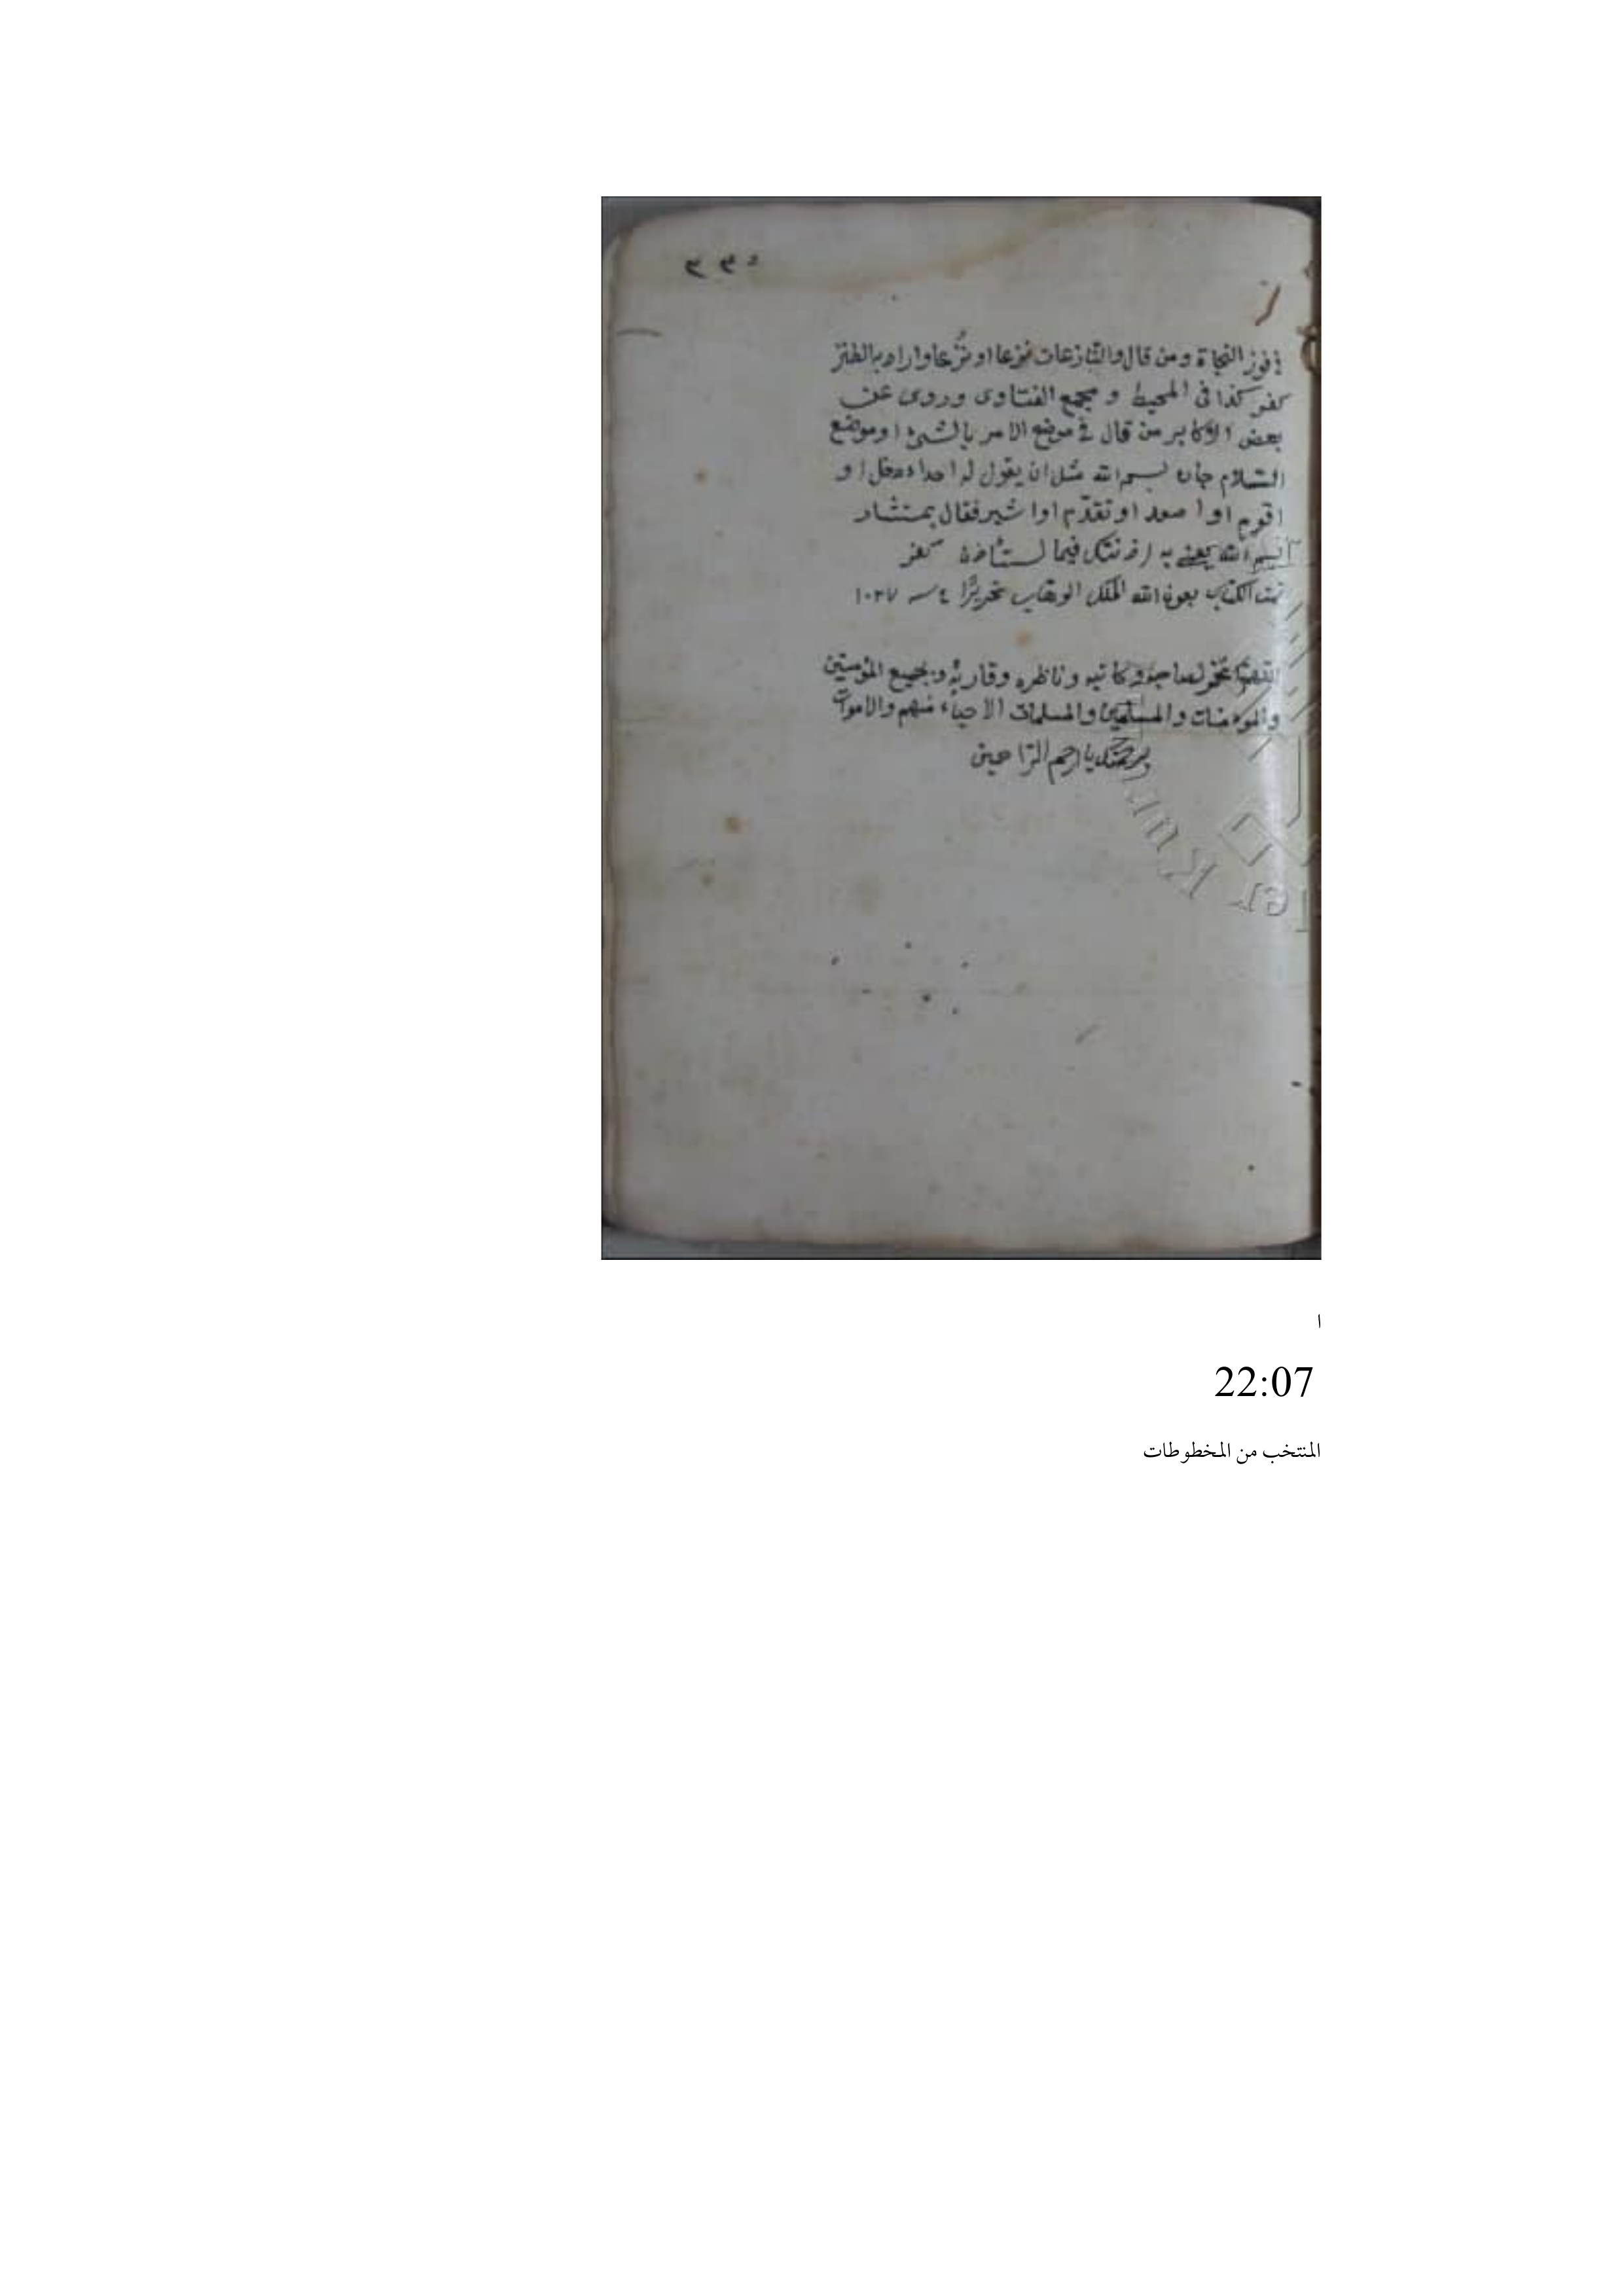 فوز النجاة ومن قال والنازعات نزعا او نُزعا واراد به الطنز
كفر كذا فى المحيط و مجمع الفتاوى وروى عن
بعض الاكابر من قال فى موضع الامر بالشئ او موضع
بسم الله مثل ان يقول له احد ادخل او
اقوم او اصعد او تقدّم او اسير فقال
بسم الله يعنى به اذنتك فيما استأذنت كفر
تمت الكتاب بعون الله الملك الوهاب تحريرًا
اللهم اغفر لصاحبه وكاتبه وناظره وقاريه وجميع المؤمنين
والمومنات والمسلمين والمسلمات الاحياء منهم والاموات
برحمتك يا ارحم الراحمين
ا
22:07
المنتخب من المخطوطات